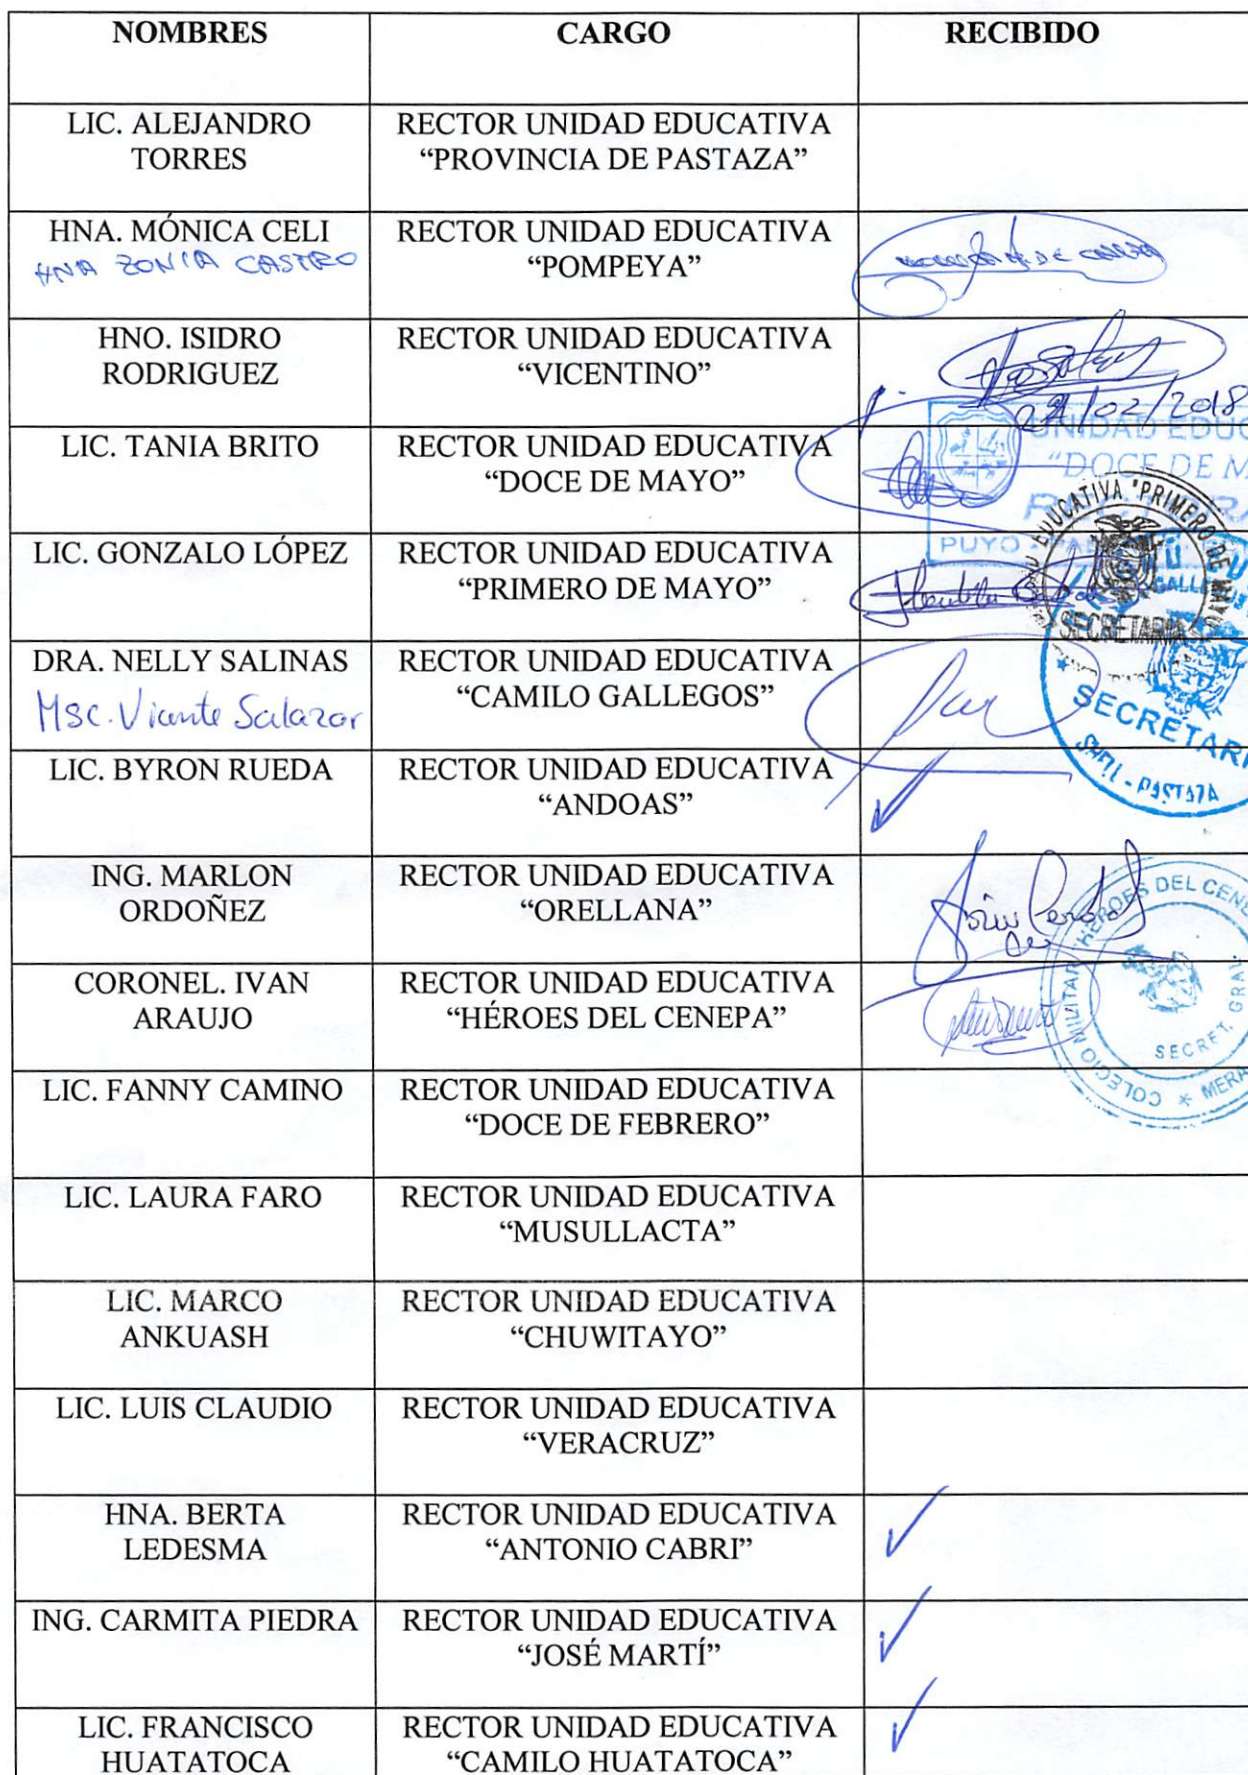 NOMBRES
CARGO
RECIBIDO
LIC. ALEJANDRO
TORRES
RECTOR UNIDAD EDUCATIVA
“PROVINCIA DE PASTAZA”
HNA. MÓNICA CELI
HNA ZONIA CASTRO
RECTOR UNIDAD EDUCATIVA
“POMPEYA”
HNO. ISIDRO
RODRIGUEZ
RECTOR UNIDAD EDUCATIVA
“VICENTINO”
/02/2018
LIC. TANIA BRITO
RECTOR UNIDAD EDUCATIVA
“DOCE DE MAYO”
UNIDAD EDUC
"DOCE DE M
PUYO
LIC. GONZALO LÓPEZ
RECTOR UNIDAD EDUCATIVA
“PRIMERO DE MAYO”
EDUCATIVA "PRIMERO DE MAYO
SECRETARIA
DRA. NELLY SALINAS
Msc. Vicente Salazar
RECTOR UNIDAD EDUCATIVA
“CAMILO GALLEGOS”
SECRETARI
SHELL - PASTAZA
LIC. BYRON RUEDA
RECTOR UNIDAD EDUCATIVA
“ANDOAS”
ING. MARLON
ORDOÑEZ
RECTOR UNIDAD EDUCATIVA
“ORELLANA”
CORONEL. IVAN
ARAUJO
RECTOR UNIDAD EDUCATIVA
“HÉROES DEL CENEPA”
COLEGIO MILITAR "HEROES DEL CENE
SECRET. GRAL.
MERA
LIC. FANNY CAMINO
RECTOR UNIDAD EDUCATIVA
“DOCE DE FEBRERO”
LIC. LAURA FARO
RECTOR UNIDAD EDUCATIVA
“MUSULLACTA”
LIC. MARCO
ANKUASH
RECTOR UNIDAD EDUCATIVA
“CHUWITAYO”
LIC. LUIS CLAUDIO
RECTOR UNIDAD EDUCATIVA
“VERACRUZ”
HNA. BERTA
LEDESMA
RECTOR UNIDAD EDUCATIVA
“ANTONIO CABRI”
ING. CARMITA PIEDRA
RECTOR UNIDAD EDUCATIVA
“JOSÉ MARTÍ”
LIC. FRANCISCO
HUATATOCA
RECTOR UNIDAD EDUCATIVA
“CAMILO HUATATOCA”